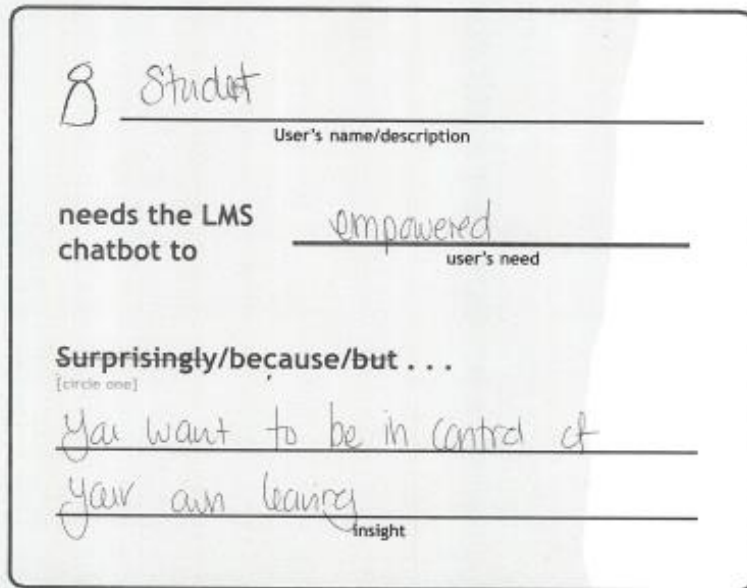 Student
User's name/description
needs the LMS
chatbot to
empowered
user's need
Surprisingly/because/but . . .
[circle one]
You want to be in control of
your own learning
insight